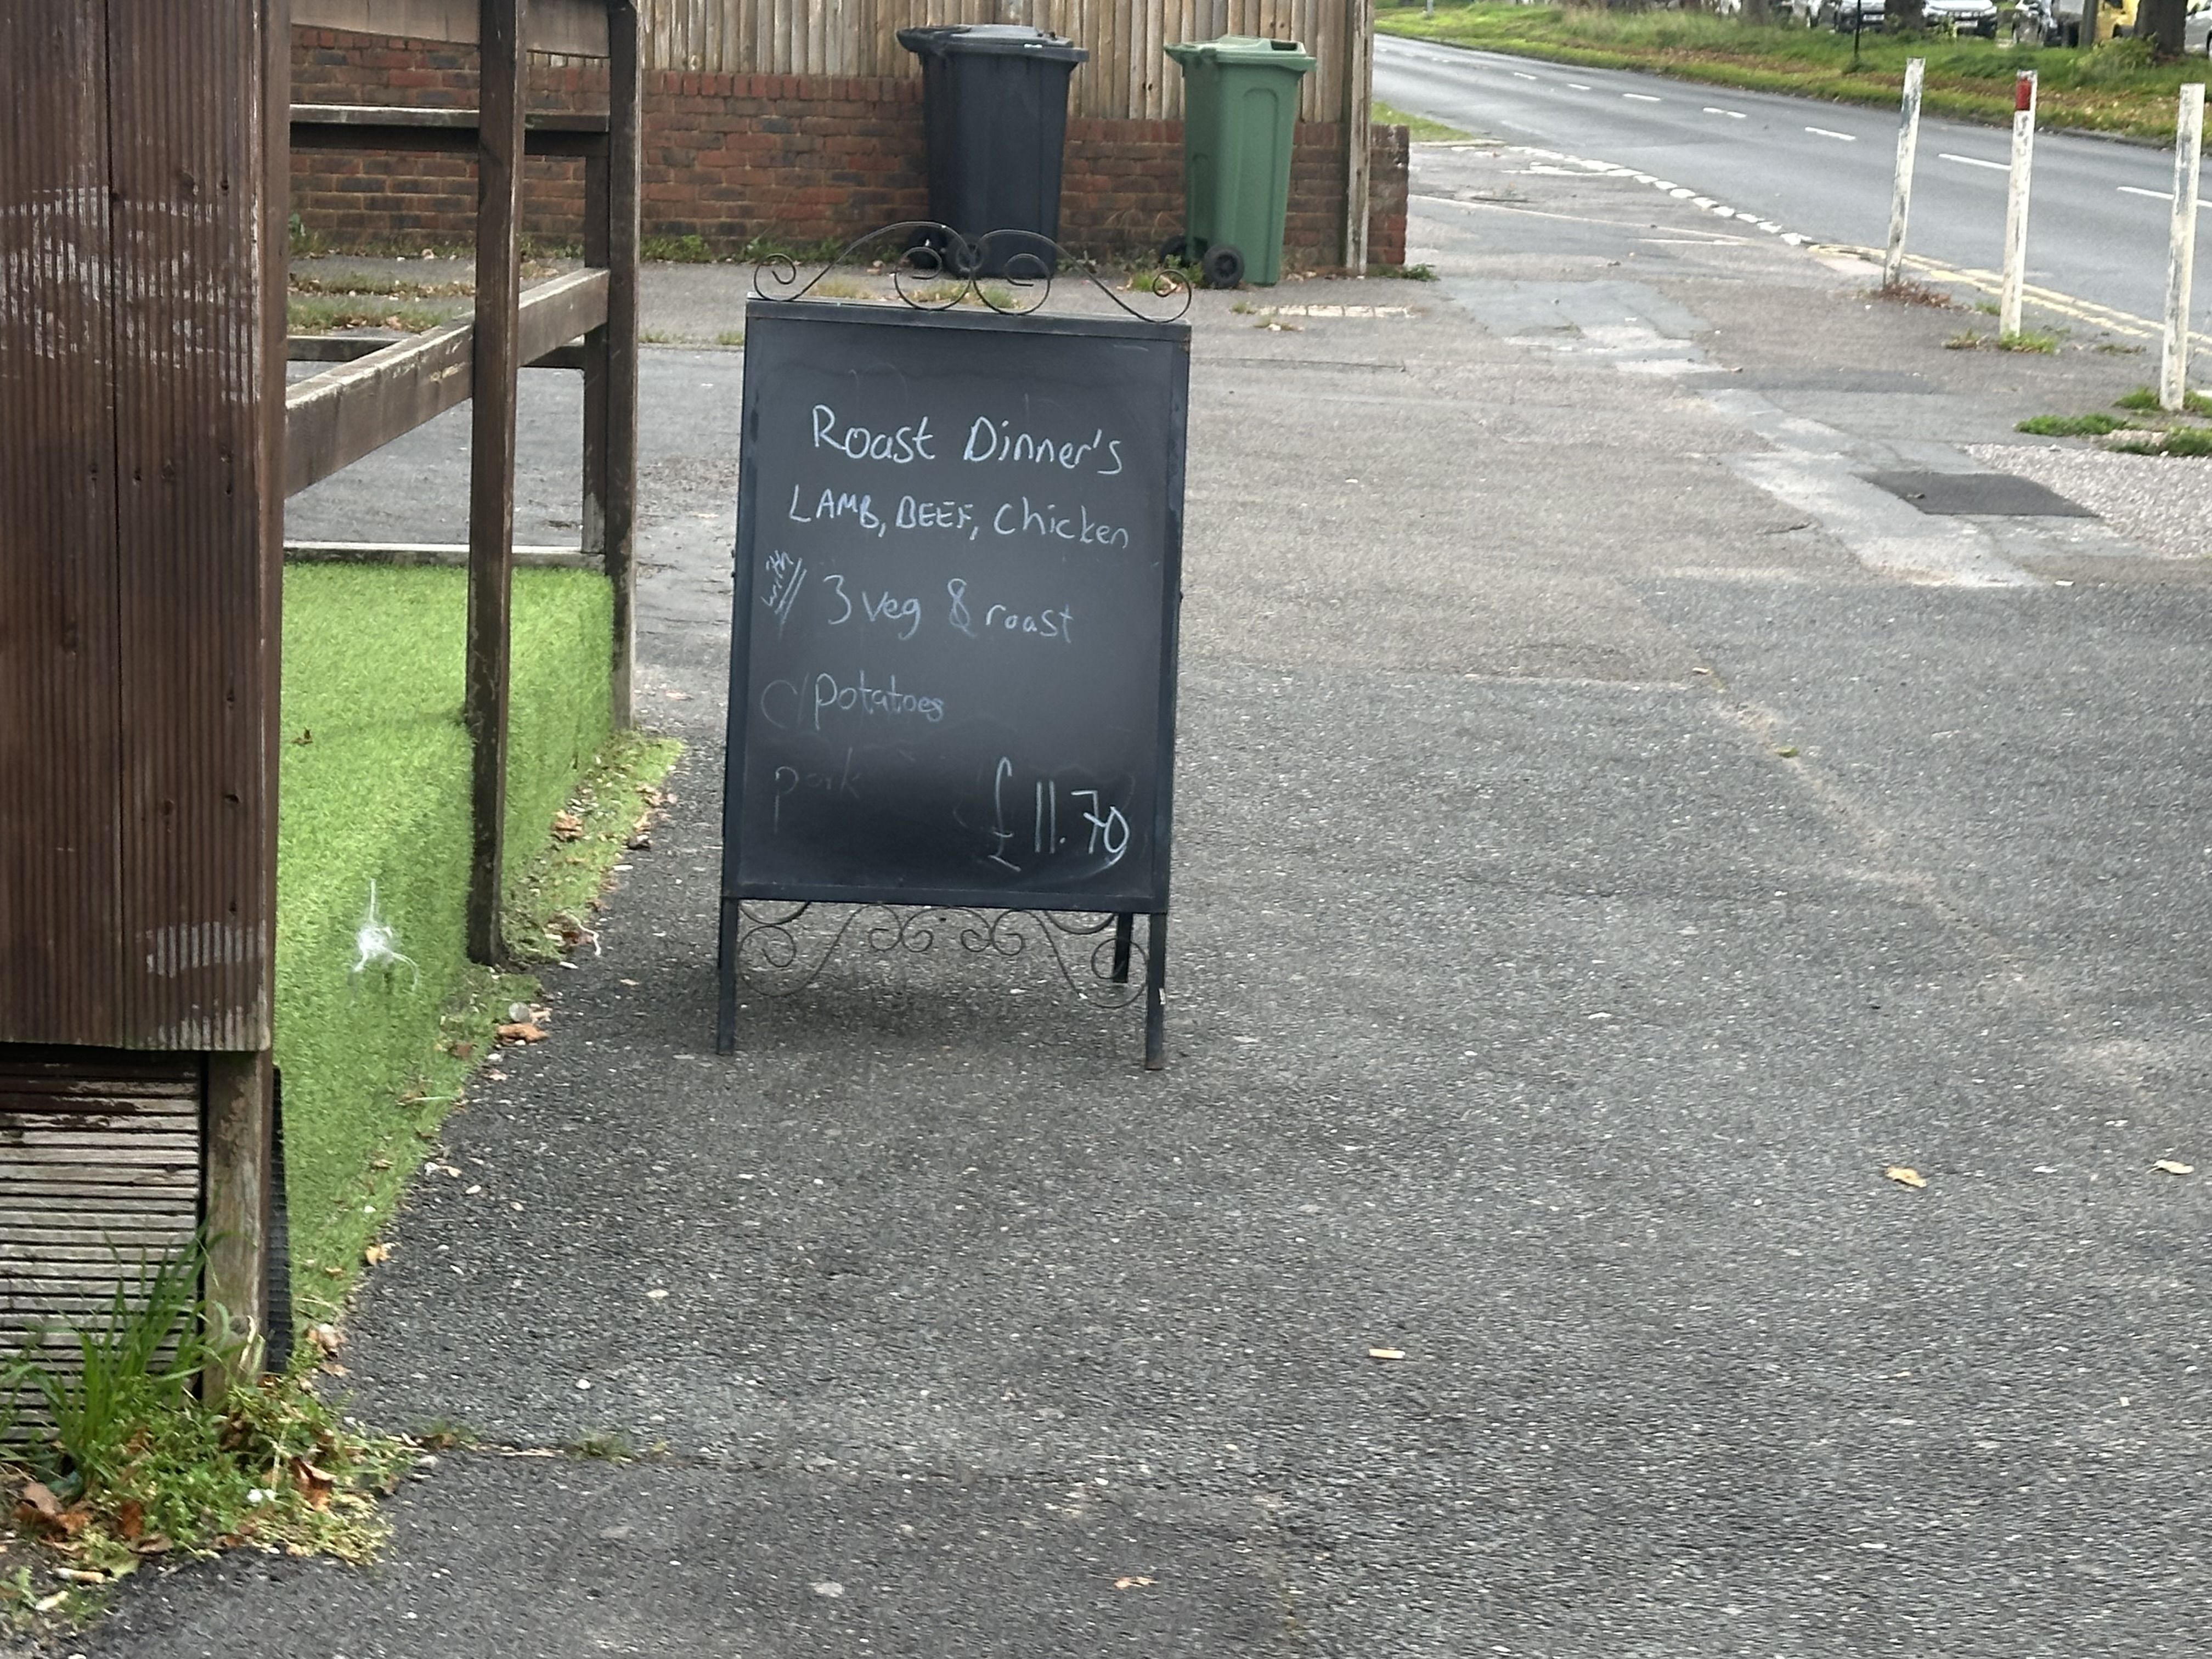 Roast Dinner's
LAMB, BEEF, Chicken
with // 3 veg & roast
potatoes
pork
£11.70